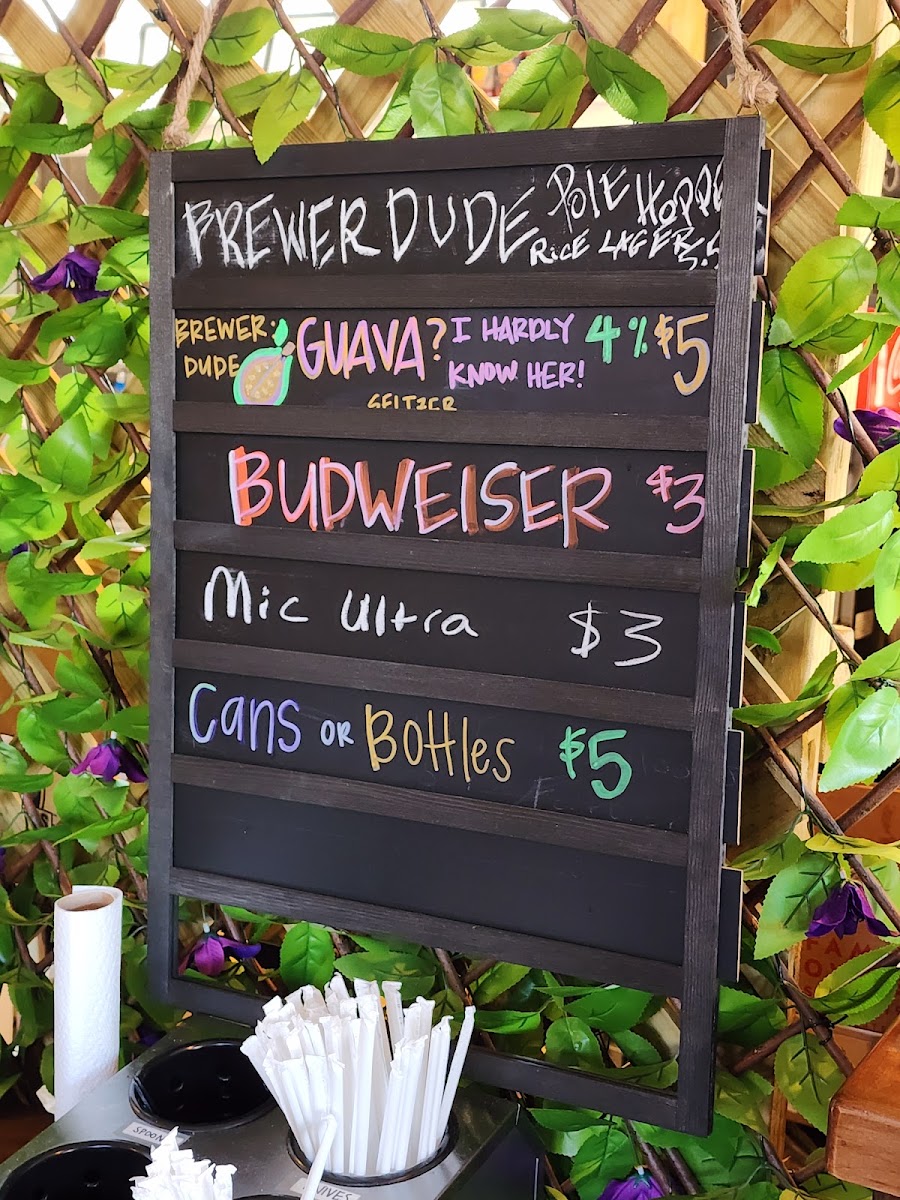 BREWER DUDE POLE HOPPE
RICE LAGER 5.5
BREWER: DUDE GUAVA? I HARDLY KNOW HER! 4% $5
SELTZER
BUDWEISER $3
Mic Ultra $3
Cans OR Bottles $5
SPOON
KNIVES